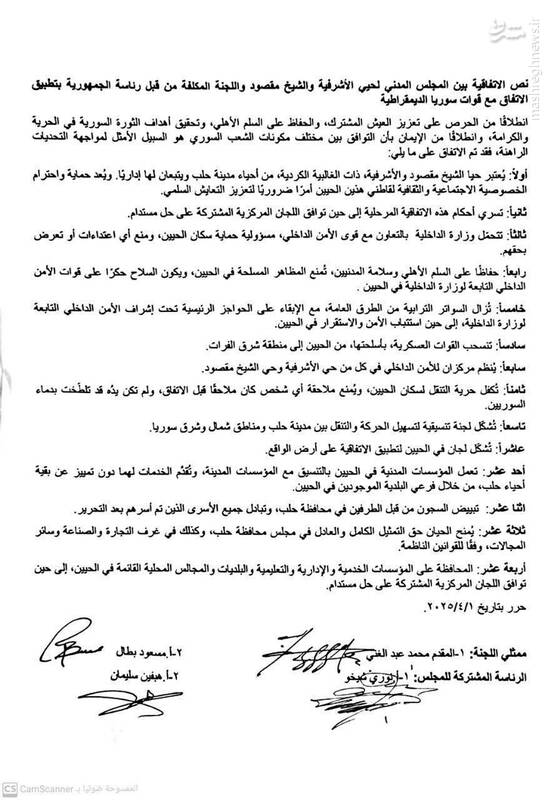 نص الاتفاقية بين المجلس المدني لحيي الأشرفية والشيخ مقصود واللجنة المكلفة من قبل رئاسة الجمهورية بتطبيق
الاتفاق مع قوات سوريا الديمقراطية
انطلاقًا من الحرص على تعزيز العيش المشترك، والحفاظ على السلم الأهلي، وتحقيق أهداف الثورة السورية في الحرية
والكرامة، وانطلاقًا من الإيمان بأن التوافق بين مختلف مكونات الشعب السوري هو السبيل الأمثل لمواجهة التحديات
الراهنة، فقد تم الاتفاق على ما يلي:
أولاً: يُعتبر حيا الشيخ مقصود والأشرفية، ذات الغالبية الكردية، من أحياء مدينة حلب ويتبعان لها إداريًا. ويُعد حماية واحترام
الخصوصية الاجتماعية والثقافية لقاطني هذين الحيين أمرًا ضروريًا لتعزيز التعايش السلمي.
ثانياً: تسري أحكام هذه الاتفاقية المرحلية إلى حين توافق اللجان المركزية المشتركة على حل مستدام.
ثالثاً: تتحمّل وزارة الداخلية بالتعاون مع قوى الأمن الداخلي، مسؤولية حماية سكان الحيين، ومنع أي اعتداءات أو تعرض
بحقهم.
رابعاً: حفاظًا على السلم الأهلي وسلامة المدنيين، تُمنع المظاهر المسلحة في الحيين، ويكون السلاح حكرًا على قوات الأمن
الداخلي التابعة لوزارة الداخلية في الحيين .
خامساً: تُزال السواتر الترابية من الطرق العامة، مع الإبقاء على الحواجز الرئيسية تحت إشراف الأمن الداخلي التابعة
لوزارة الداخلية، إلى حين استتباب الأمن والاستقرار في الحيين.
سادساً: تنسحب القوات العسكرية، بأسلحتها، من الحيين إلى منطقة شرق الفرات.
سابعاً: يُنظم مركزان للأمن الداخلي في كل من حي الأشرفية وحي الشيخ مقصود.
ثامناً: تُكفل حرية التنقل لسكان الحيين، ويُمنع ملاحقة أي شخص كان ملاحقًا قبل الاتفاق، ولم تكن يدُه قد تلطّخت بدماء
السوريين.
تاسعاً: تُشكّل لجنة تنسيقية لتسهيل الحركة والتنقل بين مدينة حلب ومناطق شمال وشرق سوريا.
عاشراً: تُشكّل لجان في الحيين لتطبيق الاتفاقية على أرض الواقع.
أحد عشر: تعمل المؤسسات المدنية في الحيين بالتنسيق مع المؤسسات المدينة، وتُقدّم الخدمات لهما دون تمييز عن بقية
أحياء حلب، من خلال فرعي البلدية الموجودين في الحيين.
اثنا عشر: تبييض السجون من قبل الطرفين في محافظة حلب، وتبادل جميع الأسرى الذين تم أسرهم بعد التحرير.
ثلاثة عشر: يُمنح الحيان حق التمثيل الكامل والعادل في مجلس محافظة حلب، وكذلك في غرف التجارة والصناعة وسائر
المجالات، وفقًا للقوانين الناظمة.
أربعة عشر: المحافظة على المؤسسات الخدمية والإدارية والتعليمية والبلديات والمجالس المحلية القائمة في الحيين، إلى حين
توافق اللجان المركزية المشتركة على حل مستدام.
حرر بتاريخ ٢٠٢٥/٤/١.
ممثلي اللجنة: ١-المقدم محمد عبد الغني ٢-أ.مسعود بطال
الرئاسة المشتركة للمجلس: ١-أ.نوري شيخو ٢-أ.هيفين سليمان
CS CamScanner الممسوحة ضوئيا بـ
مشرق
mashreghnews.ir